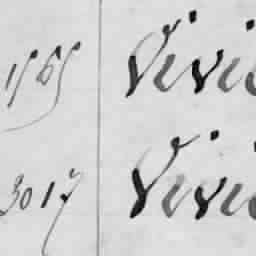 1565 Vivi
3017 Vivi